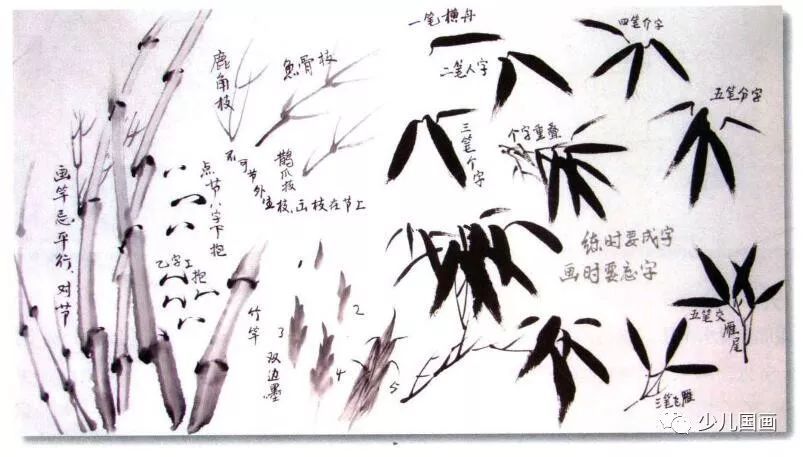 画竿忌平行、对节
鹿角枝
鱼骨枝
鹊爪枝
不可节外生枝、画枝在节上
点节八字下抱
乙字上抱
竹竿
双边墨
2
3
4
5
一笔横舟
二笔人字
三笔个字
四笔介字
五笔分字
个字重叠
练时要成字
画时要忘字
五笔交
雁尾
三笔飞雁
少儿国画